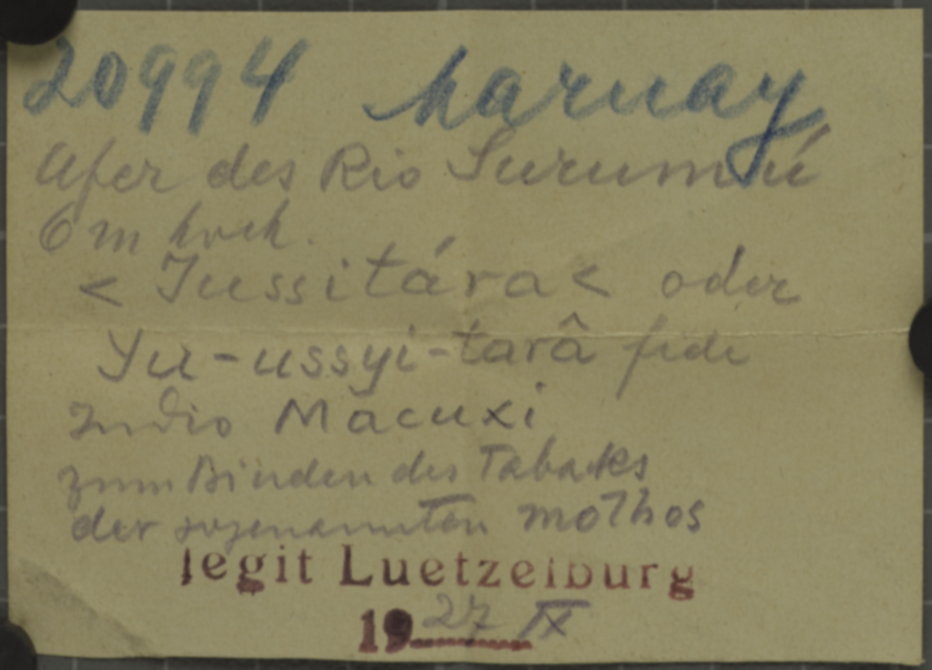 20994 Marnay
Ufer des Rio Surumú
6 m hoch.
< Jussitára < oder
Yu-ussyi-tarâ fide
Indio Macuxi
zum Binden des Tabaks
der sogenannten Molhos
legit Luetzelburg
1927 IX